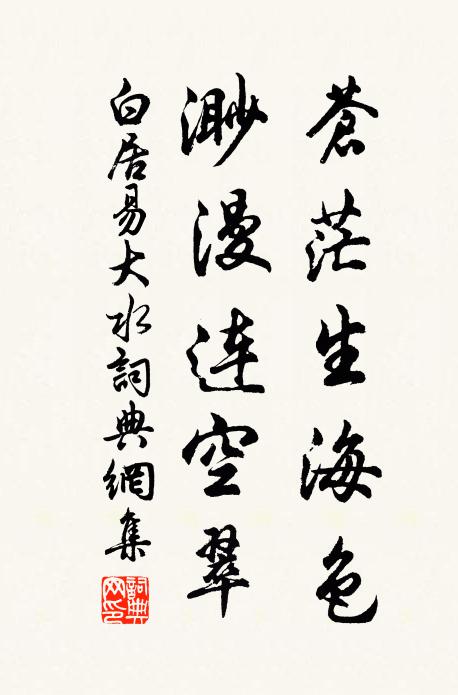 蒼茫生海色
渺漫連空翠
白居易大水詞典網集
詞典网印